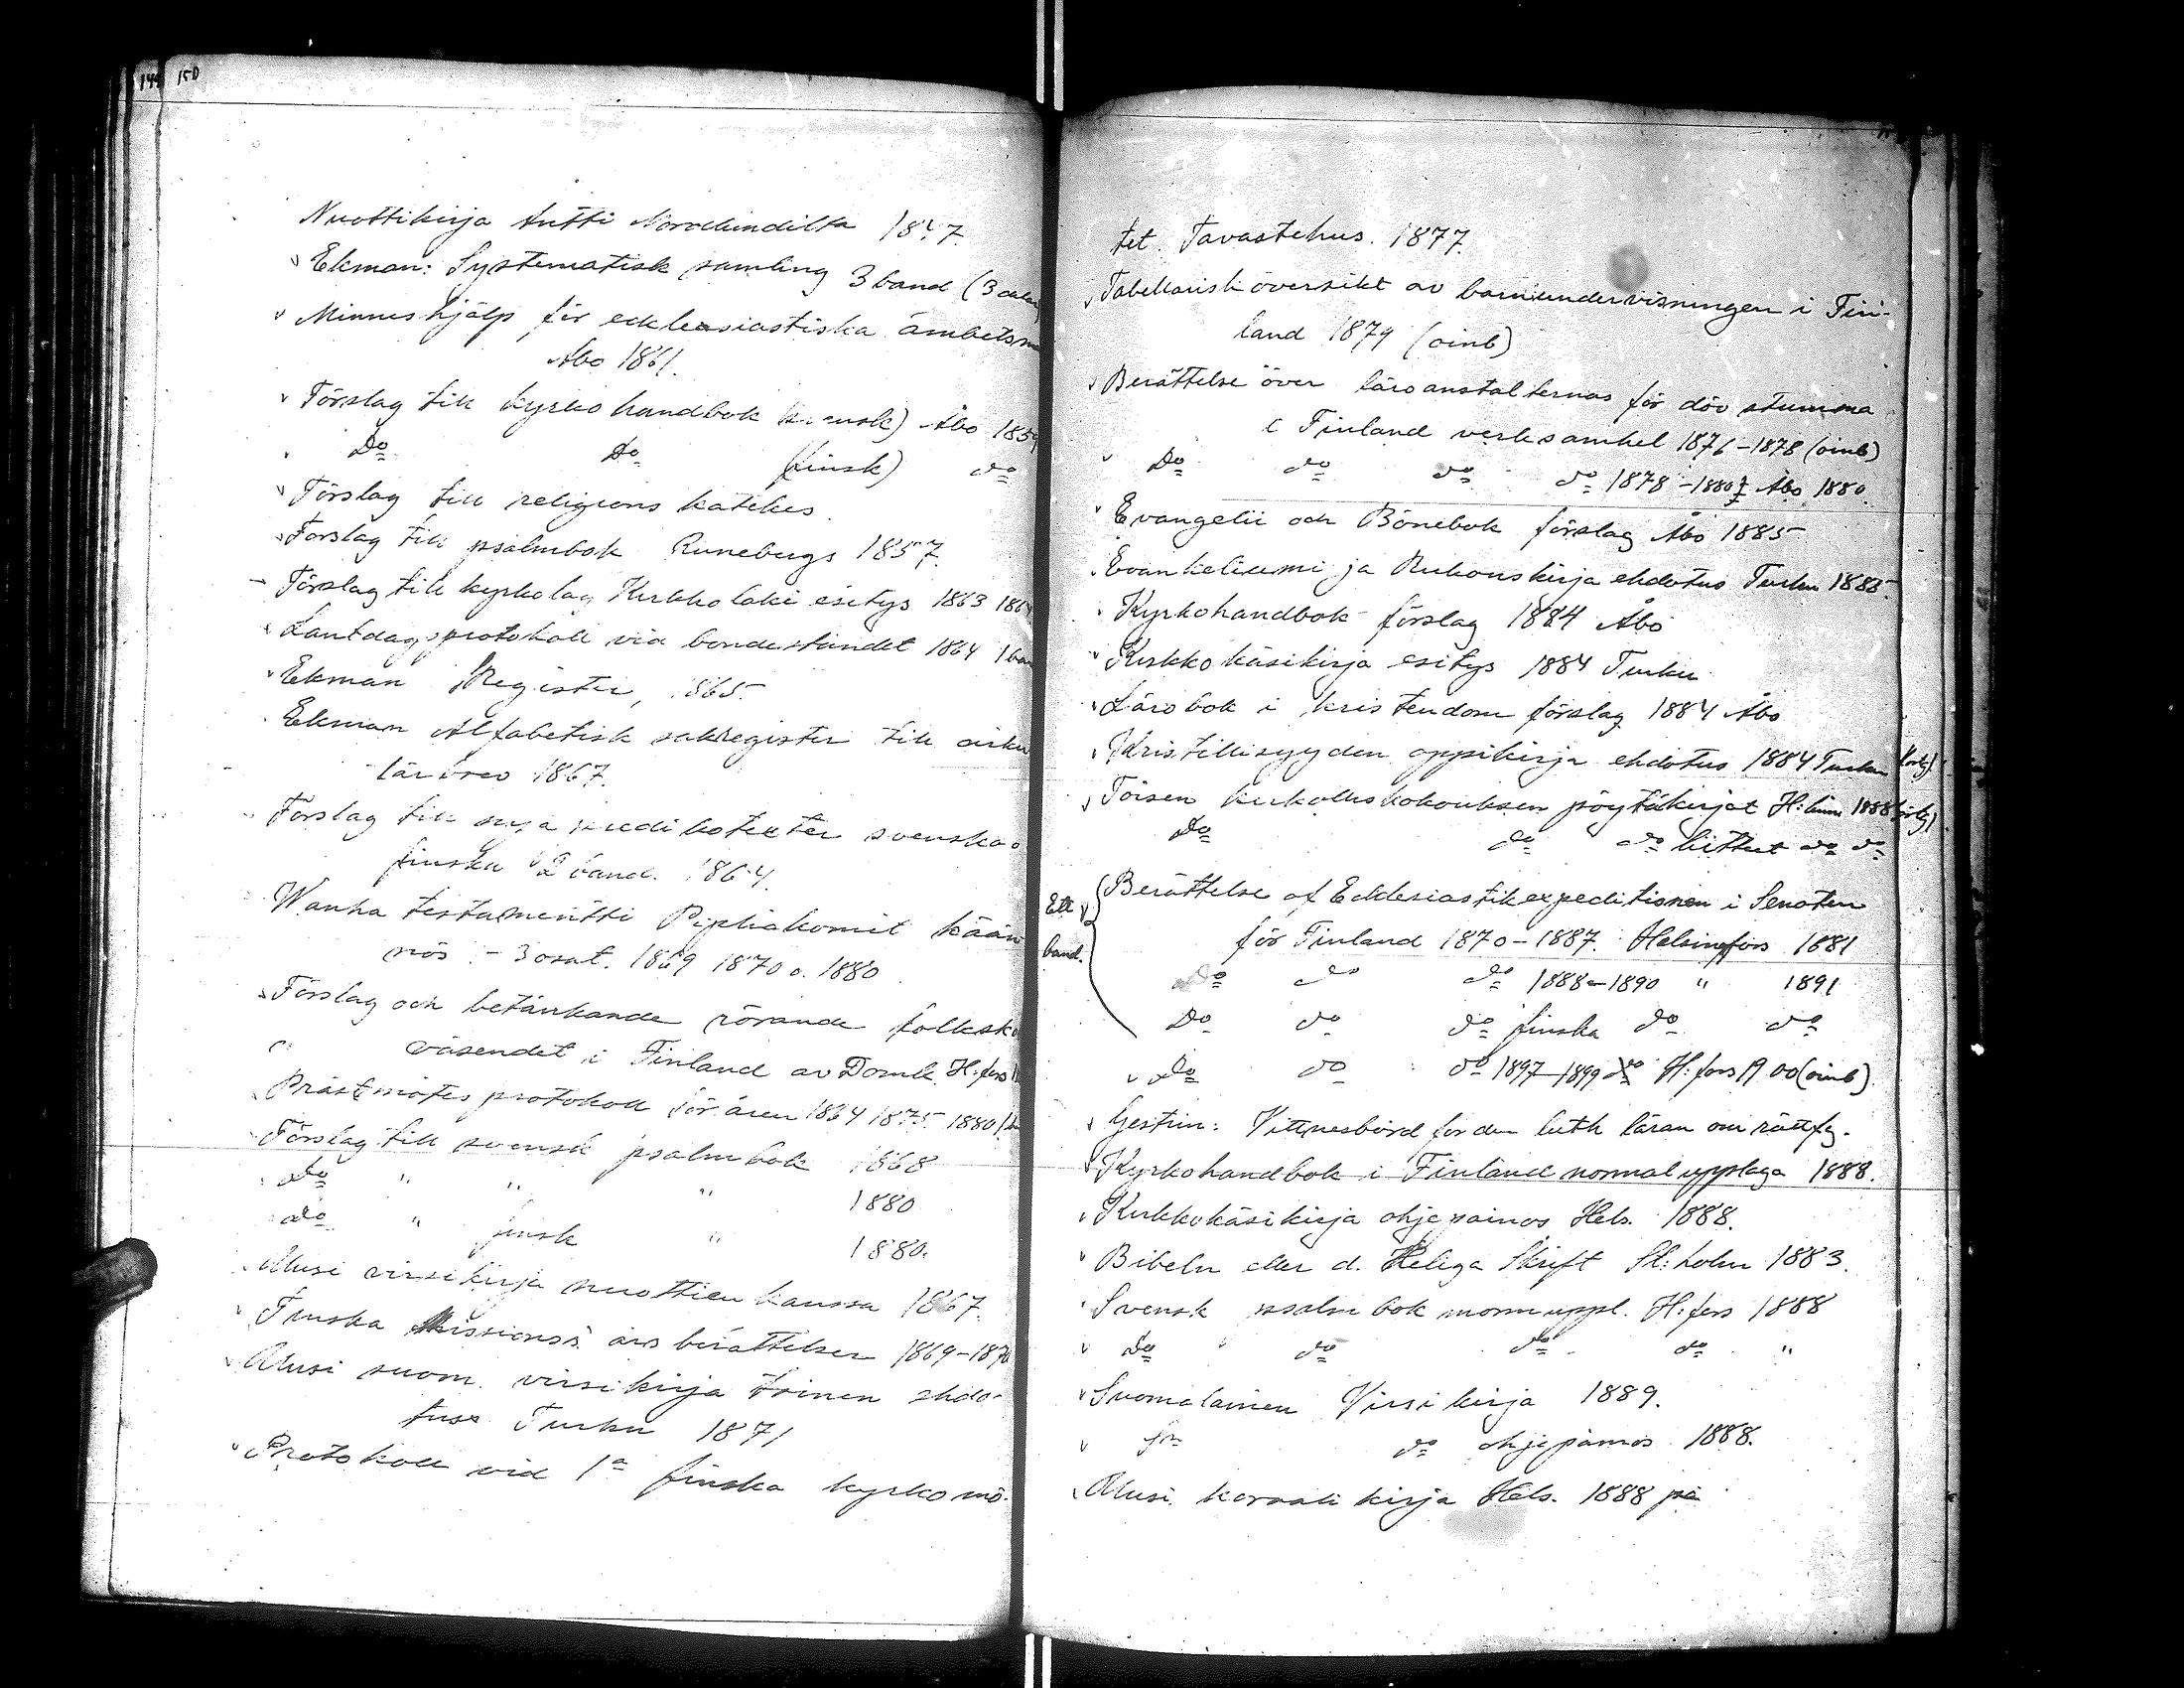 149 150
Nuottikirja Antti Nordlundilta 1847.
Ekman: Systematisk samling 3 band (3
Minneshjälp för ecklesiastiska ämbetsm
Åbo 1861.
Förslag till kyrkohandbok (svensk) Åbo 1859
Do Do (finsk) do
Förslag till religions katekes
Förslag till psalmbok Runebergs 1857.
Förslag till kyrkolag Kirkkolaki esitys 1863 1864
Lantdagsprotokoll via bondeståndet 1864 1 ban
Ekman Register, 1865
Ekman Alfabetisk sakregister till cirku
lärbrev 1867.
Förslag till nya predikotexter svenska o
finska 2 band. 1864.
Wanha testamentti Pipliakomit kään
nös - 3 osat. 1869 1870 o. 1880
Förslag och betänkande rörande folksko
väsendet i Finland av Domk. H:fors
Prästmötes protokoll för åren 1864 1875 1880
Förslag till svensk psalmbok 1868
do " " " 1880
do " finsk " 1880.
Uusi virsikirja nuottien kanssa 1867.
Finska Missionss års berättelser 1869-1870
Uusi suom. virsikirja toinen ehdo-
tus Turku 1871
Protokoll vid 1a finska kyrkomö-
tet. Tavastehus. 1877.
Tabellarisk översikt av barnundervisningen i Fin-
land 1879 (oinb)
Berättelse över läroanstalternas för döv stumma
i Finland verksamhet 1876-1878 (oinb)
Do do do do 1878-1880 Åbo 1880.
Evangelii och Bönebok förslag Åbo 1885
Evankeliumi ja Rukouskirja ehdotus Turku 1885.
Kyrkohandbok förslag 1884 Åbo
Kirkkokäsikirja esitys 1884 Turku
Lärobok i kristendom förslag 1884 Åbo
Kristillisyyden oppikirja ehdotus 1884 Turku
Toisen kirkolliskokouksen pöytäkirjat H:linna 1888
Do do do liitteet do do
Ett
band.
Berättelse af Ecklesiastikexpeditionen i Senaten
för Finland 1870-1887. Helsingfors 1881
Do do do 1888-1890 " 1891
Do do do finska do do
Do do do 1897-1899 do H:fors 19 00 (oinb)
Gestrin: Vittnesbörd for den luth läran om rättfg.
Kyrkohandbok i Finland normal upplaga 1888.
Kirkkokäsikirja ohjepainos Hels. 1888.
Bibeln eller d. Heliga Skrift St:holm 1883.
Svensk psalmbok normuppl. H:fors 1888
Do do do do "
Suomalainen Virsikirja 1889.
do ohjepainos 1888.
Uusi koraalikirja Hels. 1888 på